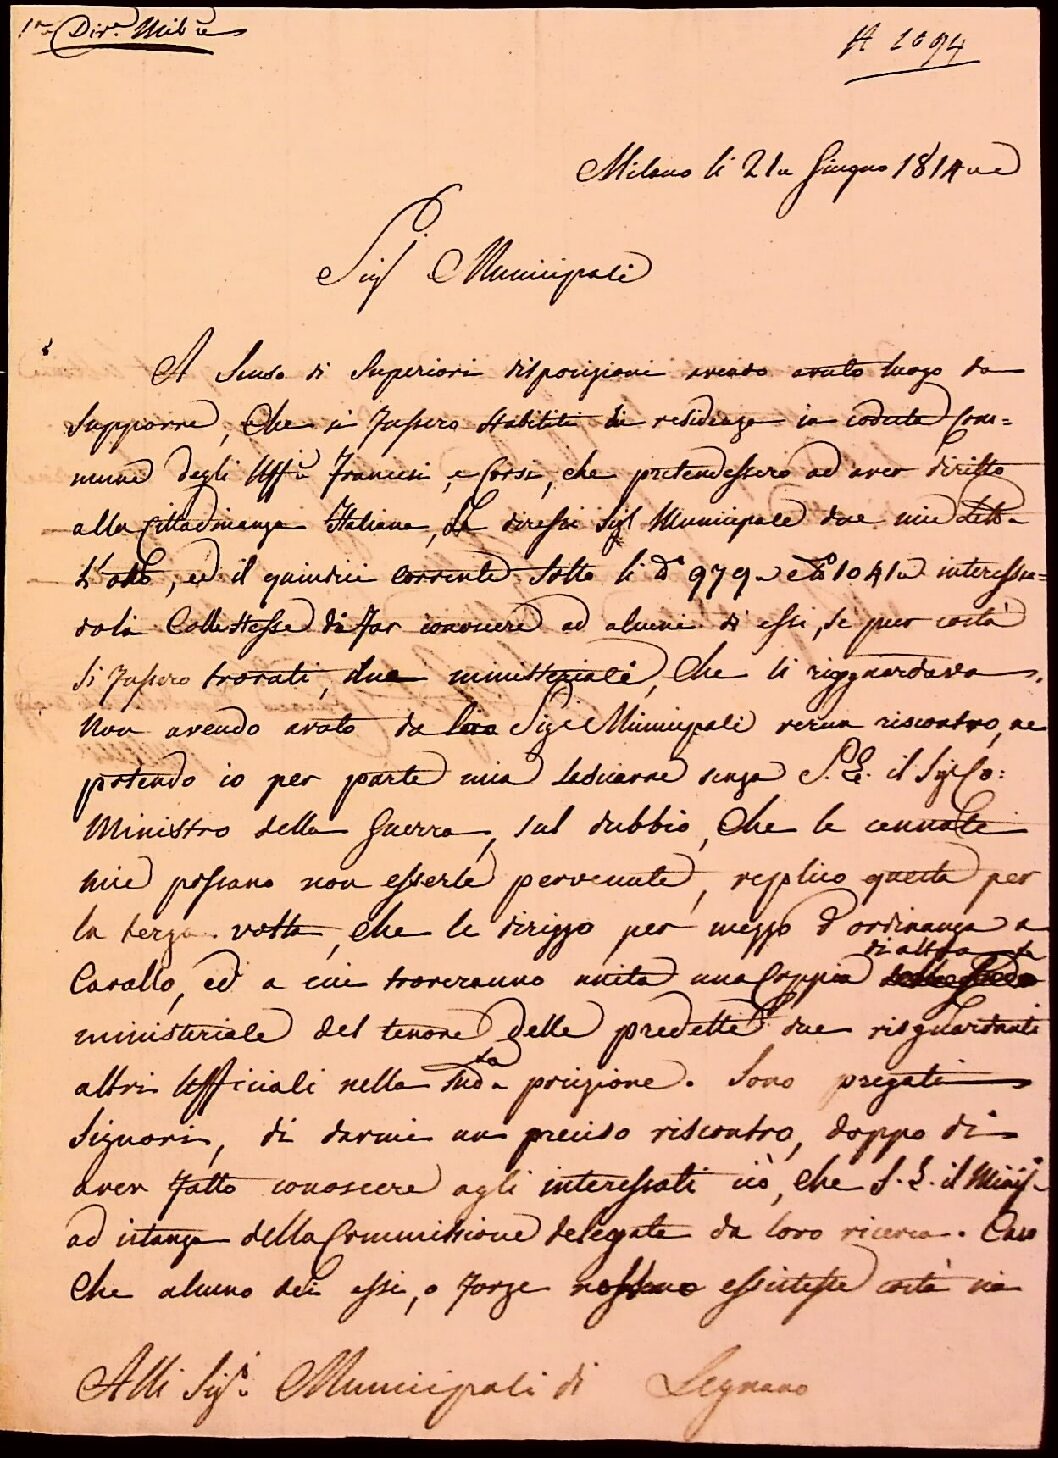 1ma Divne Milre
N 1094
Milano li 21 Giugno 1814
Sigi Municipali
A Senso di Superiori disposizioni avendo avuto luogo da
supporre, che si fussero stabiliti di residenza in codesta Com=
mune degli Uffli Francesi, e Corsi, che pretendessero ad aver diritto
alla Cittadinanza Italiana, Le diressi Sigi Municipali due mie Lette
L'otto, ed il quindici corrente sotto li Ni 979 e 1041 interessan=
dola Colle stesse di far conoscere ad alcuni di essi, se pur costà
si fussero trovati, due ministeriali, che li risguardava.
Non avendo avuto da loro Sigi Municipali verun riscontro, ne
potendo io per parte mia lasciarne senza S.E. il Sig Co:
Ministro della Guerra, sul dubbio, che le cennate
mie possano non esserle pervenute, replico questa per
la terza volta, che le dirizzo per mezzo d'ordinanza a
Cavallo, ed a cui troveranno unita una Coppia di altra
ministeriale del tenore delle predette due risguardanti
altri Ufficiali nella suda posizione. Sono pregati
Signori, di darmi un preciso riscontro, doppo di
aver fatto conoscere agli interessati ciò, che S.E. il Minis
ad istanza della Commissione delegata da loro ricerca. Caso
che alcuno di essi, o forze nessuno essistesse costà mi
Alli Sigi Municipali di Legnano